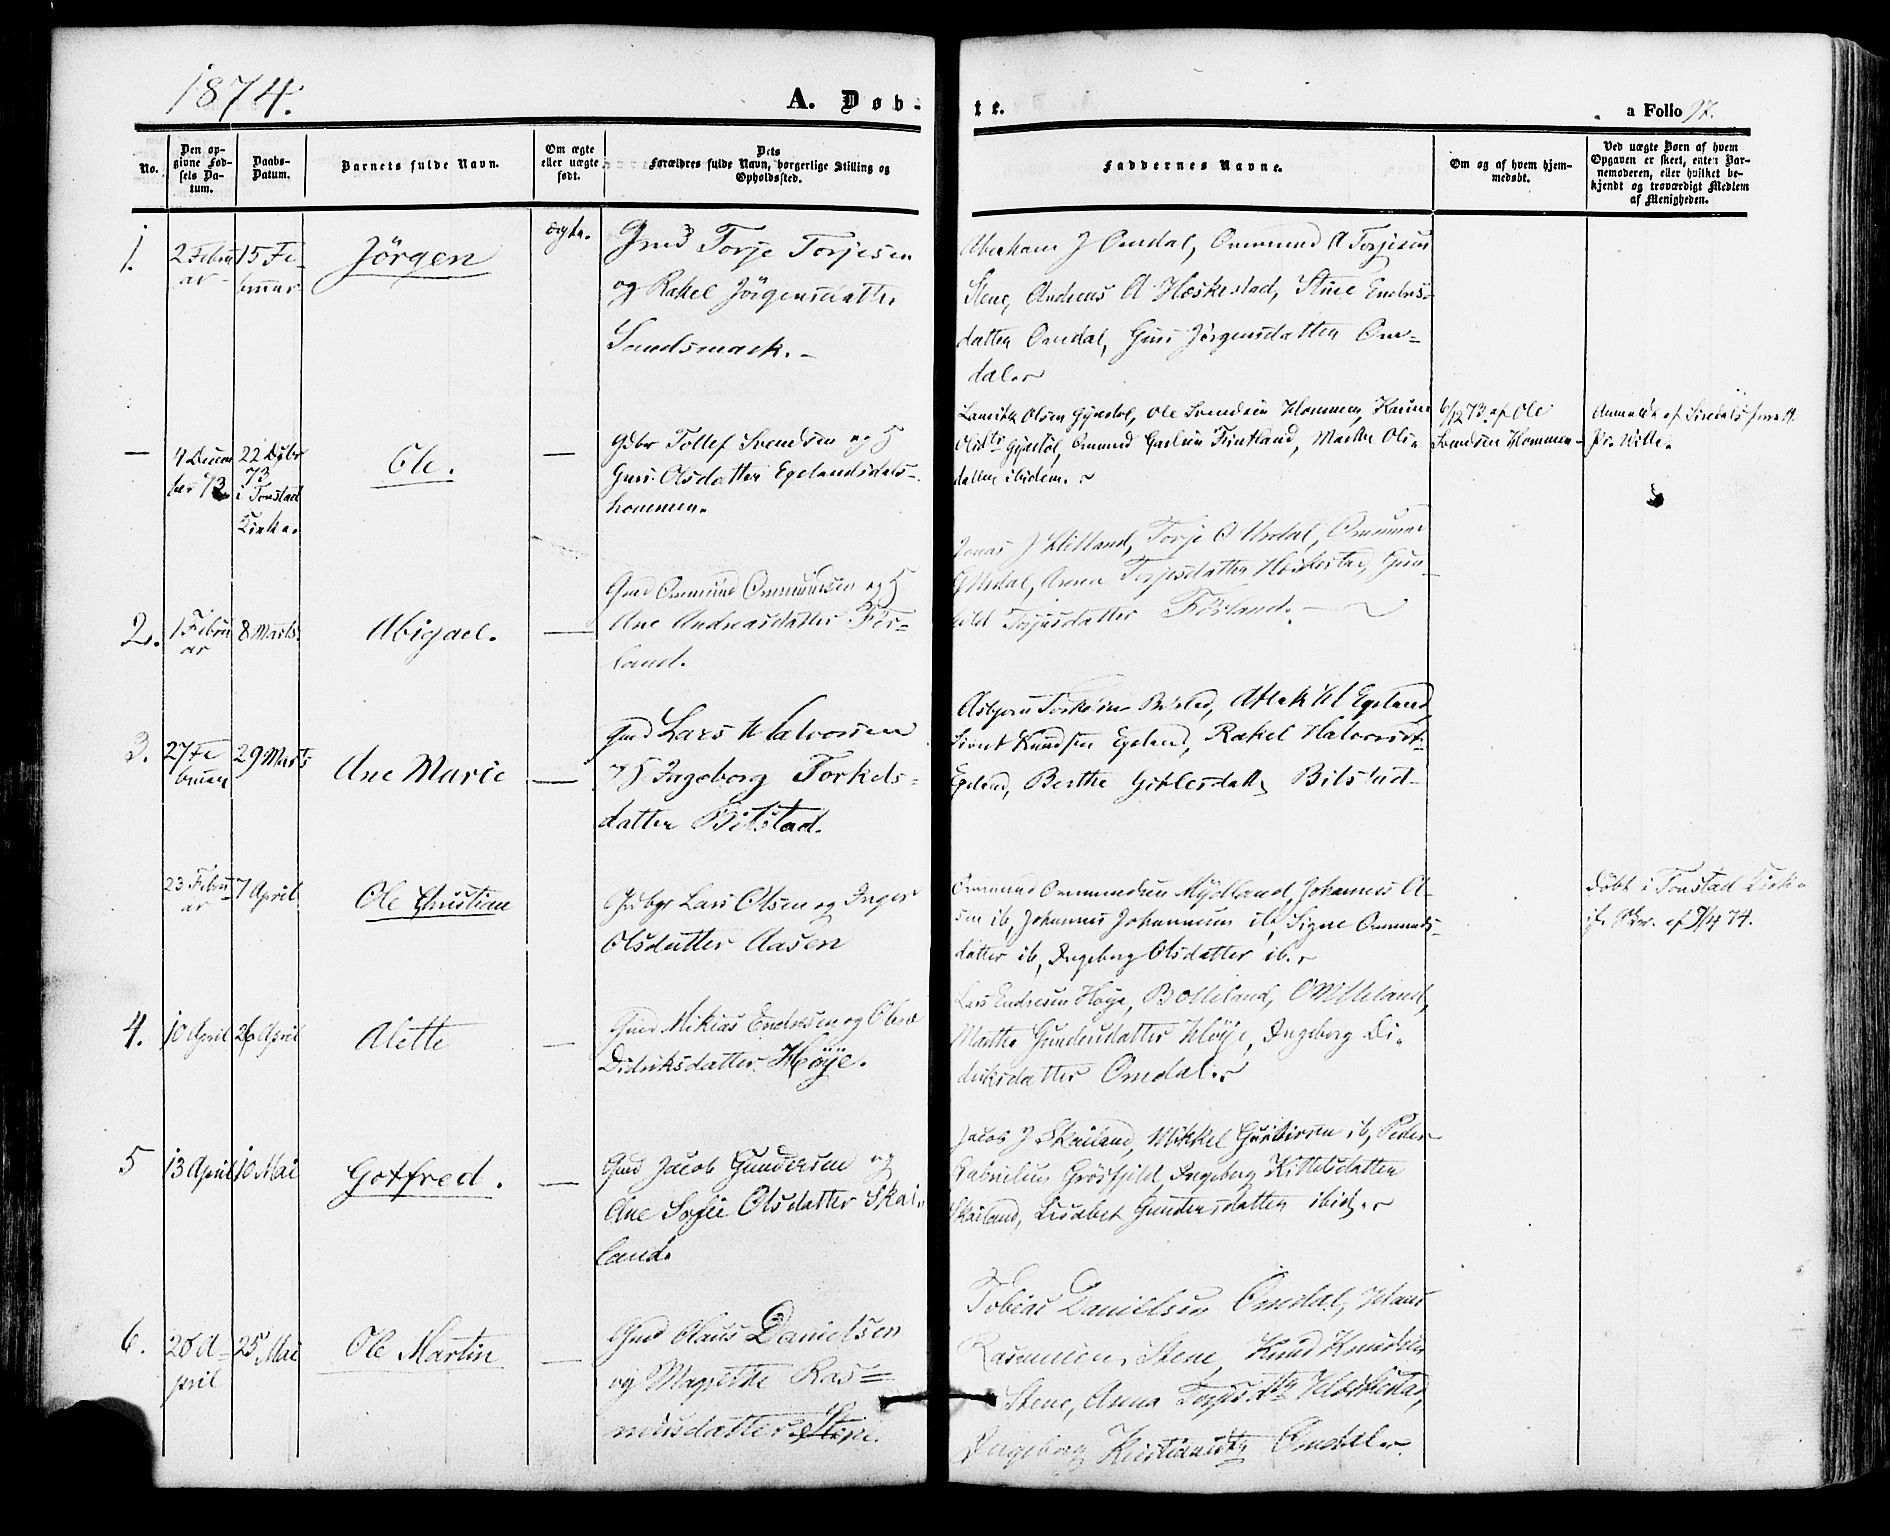 1874.
A. Døb-
te.
a Folio 97.
No.
Den op-
givne Fød-
sels Da-
tum.
Daabs-
Datum.
Barnets fulde Navn.
Om ægte
eller uægte
født.
Dets
Forældres fulde Navn, borgerlige Stilling og
Opholdssted.
Faddernes Navne.
Om og af hvem hjem-
medøbt.
Ved uægte Børn af hvem
Opgaven er skeet, enten Bar-
nemoderen, eller hvilket be-
kjendt og troværdigt Medlem
af Menigheden.
1.
2 Febru
ar
15 Fe-
bruar
Jörgen
ægte.
Gmd Torje Torjesen
og Rakel Jörgensdatter
Sandsmark.
Abraham J Omdal, Ommund A Torjesen
Stene, Andreas A Heskestad, Stine Endres-
datter Omdal, Guri Jörgensdatter Om-
dal.
—
4 Decem
ber 73
22 Dcbr
73
i Tonstad
Kirke.
Ole.
—
Gdbr Tollef Svendsen og H
Guri Olsdatter Egelandsdals-
hommen.
Olsen Gyristøl, Ole Svendsen Hommen, Karine
Olsdtr Gyristøl, Omund Fintland, Marthe Ols-
datter ibidem.
6/12 73 af Ole
Svendsen Hommen
Anmeldt af Siredals
Pr. Wille.
2.
1 Febru
ar
8 Marts.
Abigael.
—
Gmd Ommund Ommundsen og H
Ane Andreasdatter För-
land.
Jonas J Lilland, Torje O Urdal, Ommund
Urdal, Anna Torjesdatter Heskestad, Gun-
hild Torjesdatter Förland.
3.
27 Fe
bruar
29 Marts
Ane Marie
—
Gmd Lars Halvorsen
og H Ingeborg Torkels-
datter Bilstad.
Asbjørn Torkelsen Bilstad, Atlak H Egeland
Sivert Knudsen Egeland, Rakel Halvorsdt-
Egeland, Berthe Gitlesdatt Bilstad-
23 Febru
ar
7 April
Ole Christian
Gdbgr Lars Olsen og Inger
Olsdatter Aasen
Ommund Ommundsen Mydland, Johannes O-
sen ib, Johannes Johannesen ib, Signe Ommunds-
datter ib, Ingeborg Olsdatter ib.
Døbt i Tonstad Kirke
if. Skr. af 7/4 74.
4.
10 April
26 April
Alette
—
Gmd Mikias Endresen og Olene
Didriksdatter Höye.
Lars Endresen Höye, B Olleland, O Olleland,
Marthe Gundersdatter Höye, Ingeborg Di-
driksdatter Omdal.
5
13 April
10 Mai
Gotfred.
—
Gmd Jacob Gundersen og
Ane Sofie Olsdatter Skai-
land.
Jacob J Skailand, Mikkel Gundersen ib, Peder
Gabrielsen Grösfjeld, Ingeborg Kittelsdatter
Skailand, Lisabet Gundersdatter ibid.
6.
28 A-
pril
25 Mai
Ole Martin
—
Gmd Claus Danielsen
og Magrethe Ras-
musdatter Stene.
Tobias Danielsen Omdal, Hans
Rasmussen Stene, Knud Knudsen
Stene, Anna Torjesdtr Heskestad,
Ingeborg Kristiansdtr Omdal.